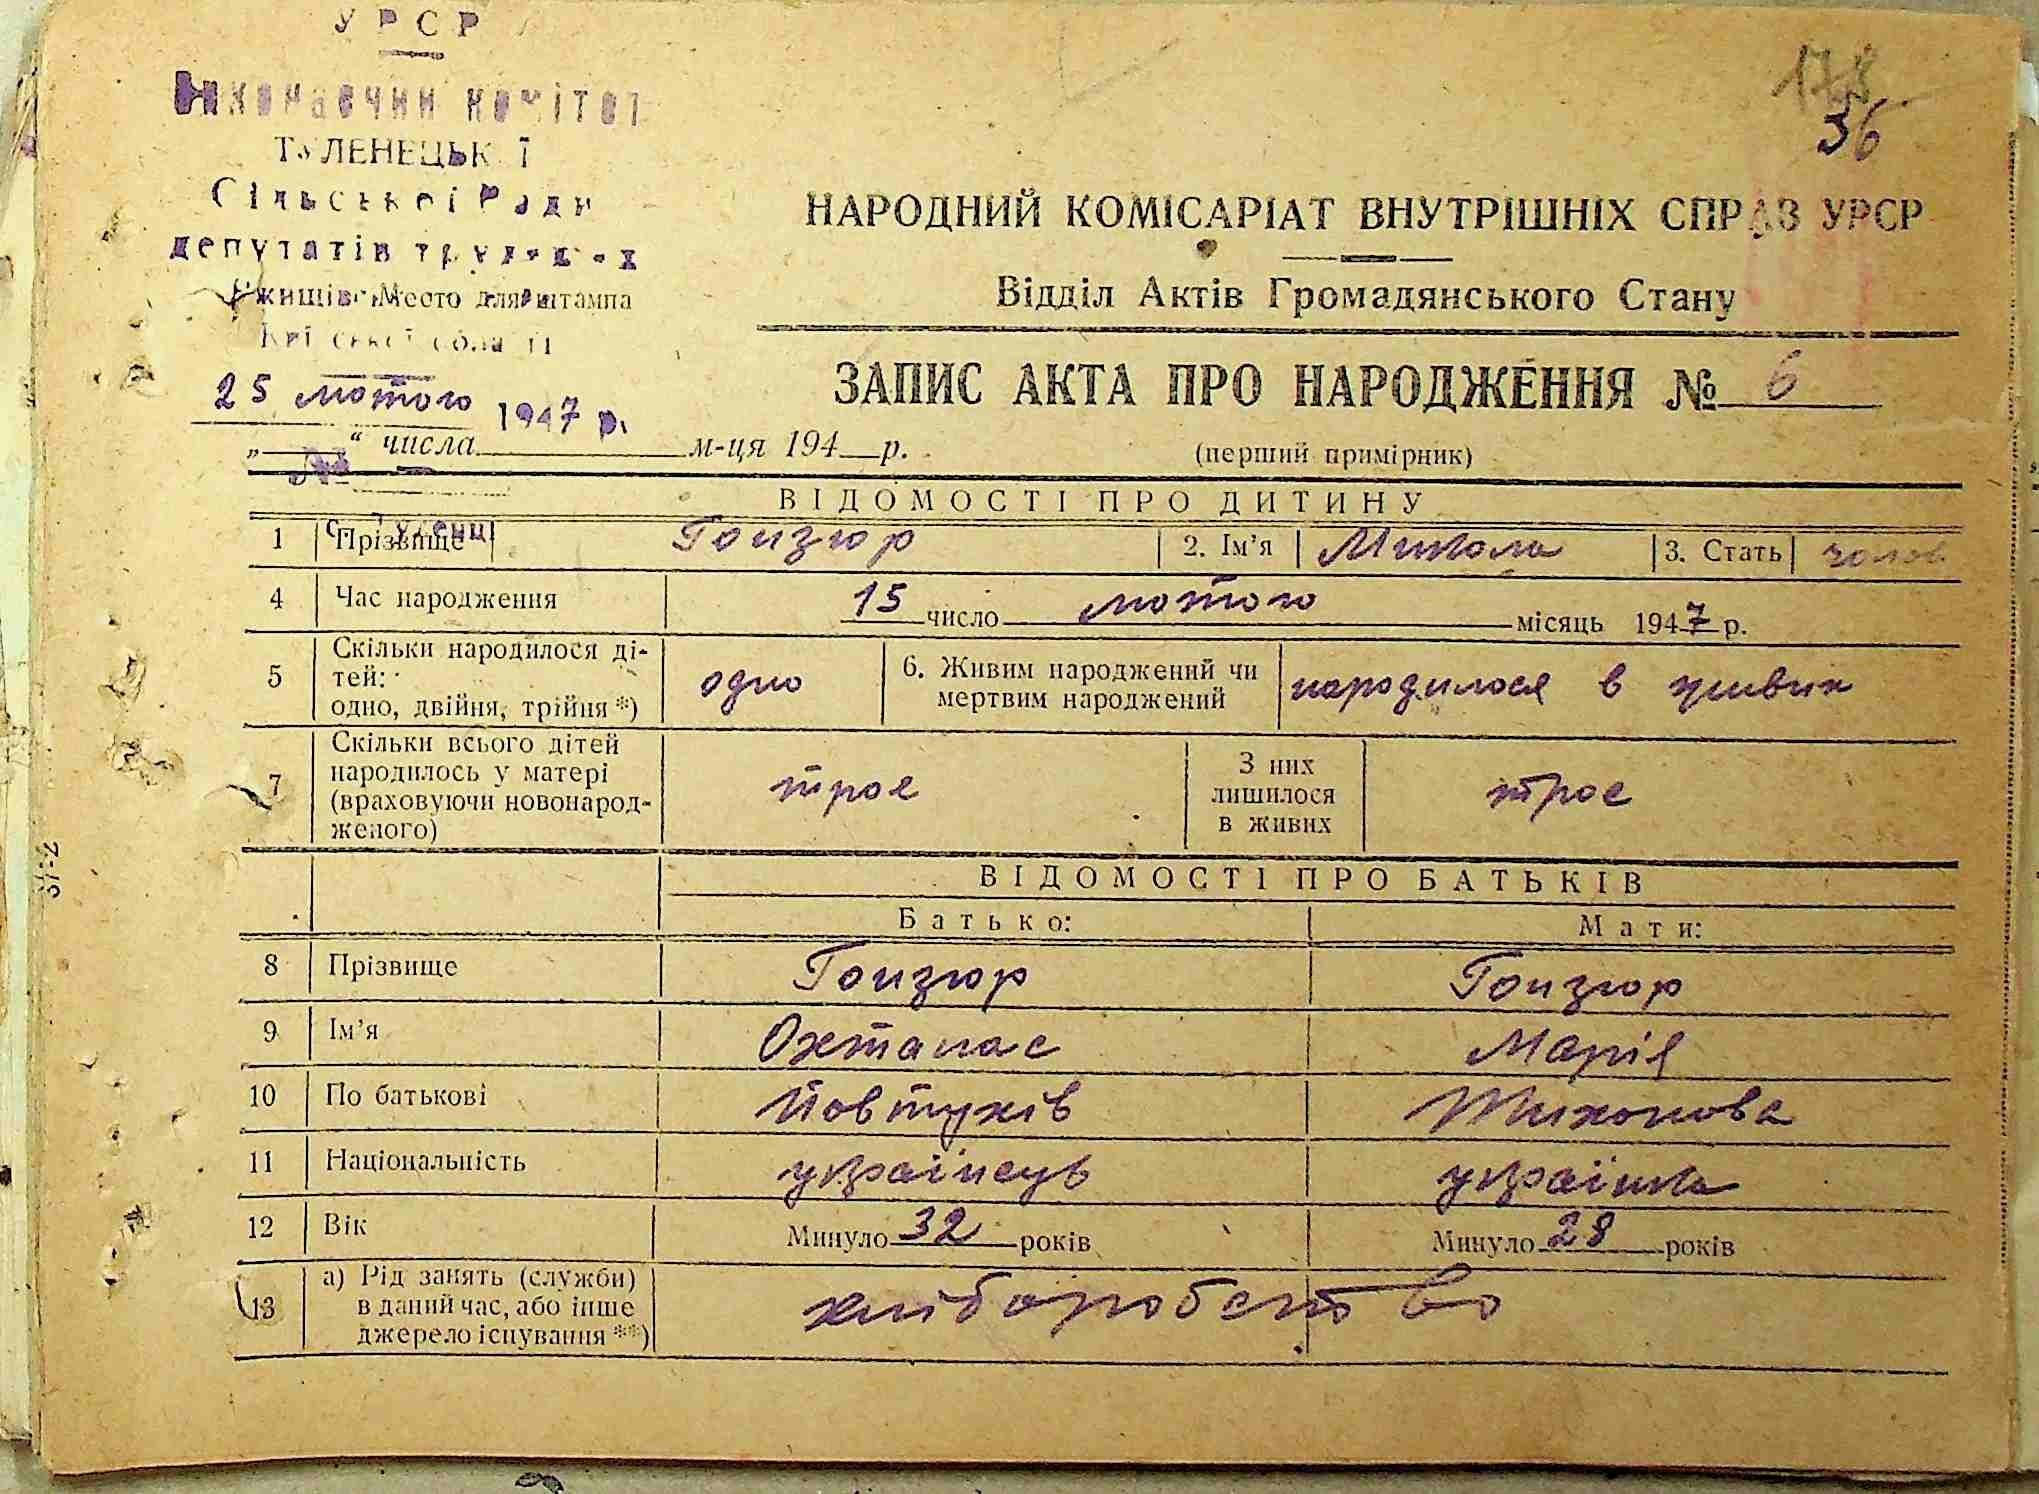 УРСР
Виконавчий комітет
ТУЛЕНЕЦЬКОЇ
Сільської Ради
депутатів трудящих
Место для штампа
Київської області
25 лютого 1947 р.
178
36
НАРОДНИЙ КОМІСАРІАТ ВНУТРІШНІХ СПРАВ УРСР
Відділ Актів Громадянського Стану
ЗАПИС АКТА ПРО НАРОДЖЕННЯ № 6
„ “ числа м-ця 194 р.
(перший примірник)
№
с. Туленці
ВІДОМОСТІ ПРО ДИТИНУ
1 Прізвище Гоизюр 2. Ім’я Микола 3. Стать чолов
4 Час народження 15 число лютого місяць 1947 р.
5 Скільки народилося ді-
тей:
одно, двійня, трійня *) одно 6. Живим народжений чи
мертвим народжений народилося в живих
7 Скільки всього дітей
народилось у матері
(враховуючи новонарод-
женого) троє З них
лишилося
в живих троє
ВІДОМОСТІ ПРО БАТЬКІВ
Батько: Мати:
8 Прізвище Гоизюр Гоизюр
9 Ім’я Охтанас Марія
10 По батькові Йовтухів Тихонова
11 Національність українець українка
12 Вік Минуло 32 років Минуло 28 років
13 а) Рід занять (служби)
в даний час, або інше
джерело існування **) хліборобство